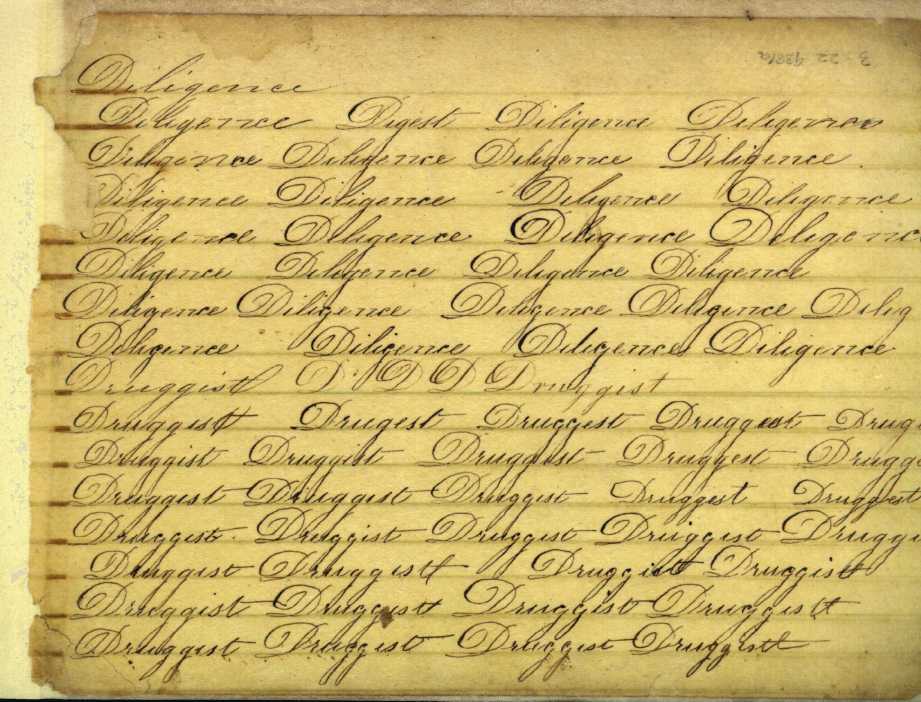 Diligence
Diligence Digest Diligence Diligence
Diligence Diligence Diligence Diligence
Diligence Diligence Diligence Diligence
Diligence Diligence Diligence Diligenc
Diligence Diligence Diligence Diligence
Diligence Diligence Diligence Diligence Dilig
Diligence Diligence Diligence Diligence
Druggist D D D Druggist
Druggist Drugest Druggist Druggest Drug
Druggist Druggist Druggist Druggest Drugg
Druggist Druggist Druggist Druggest Druggist
Druggist Druggist Druggist Druggist Druggi
Druggist Druggist Druggist Druggist
Druggist Druggist Druggist Druggist
Druggist Druggist Druggist Druggist